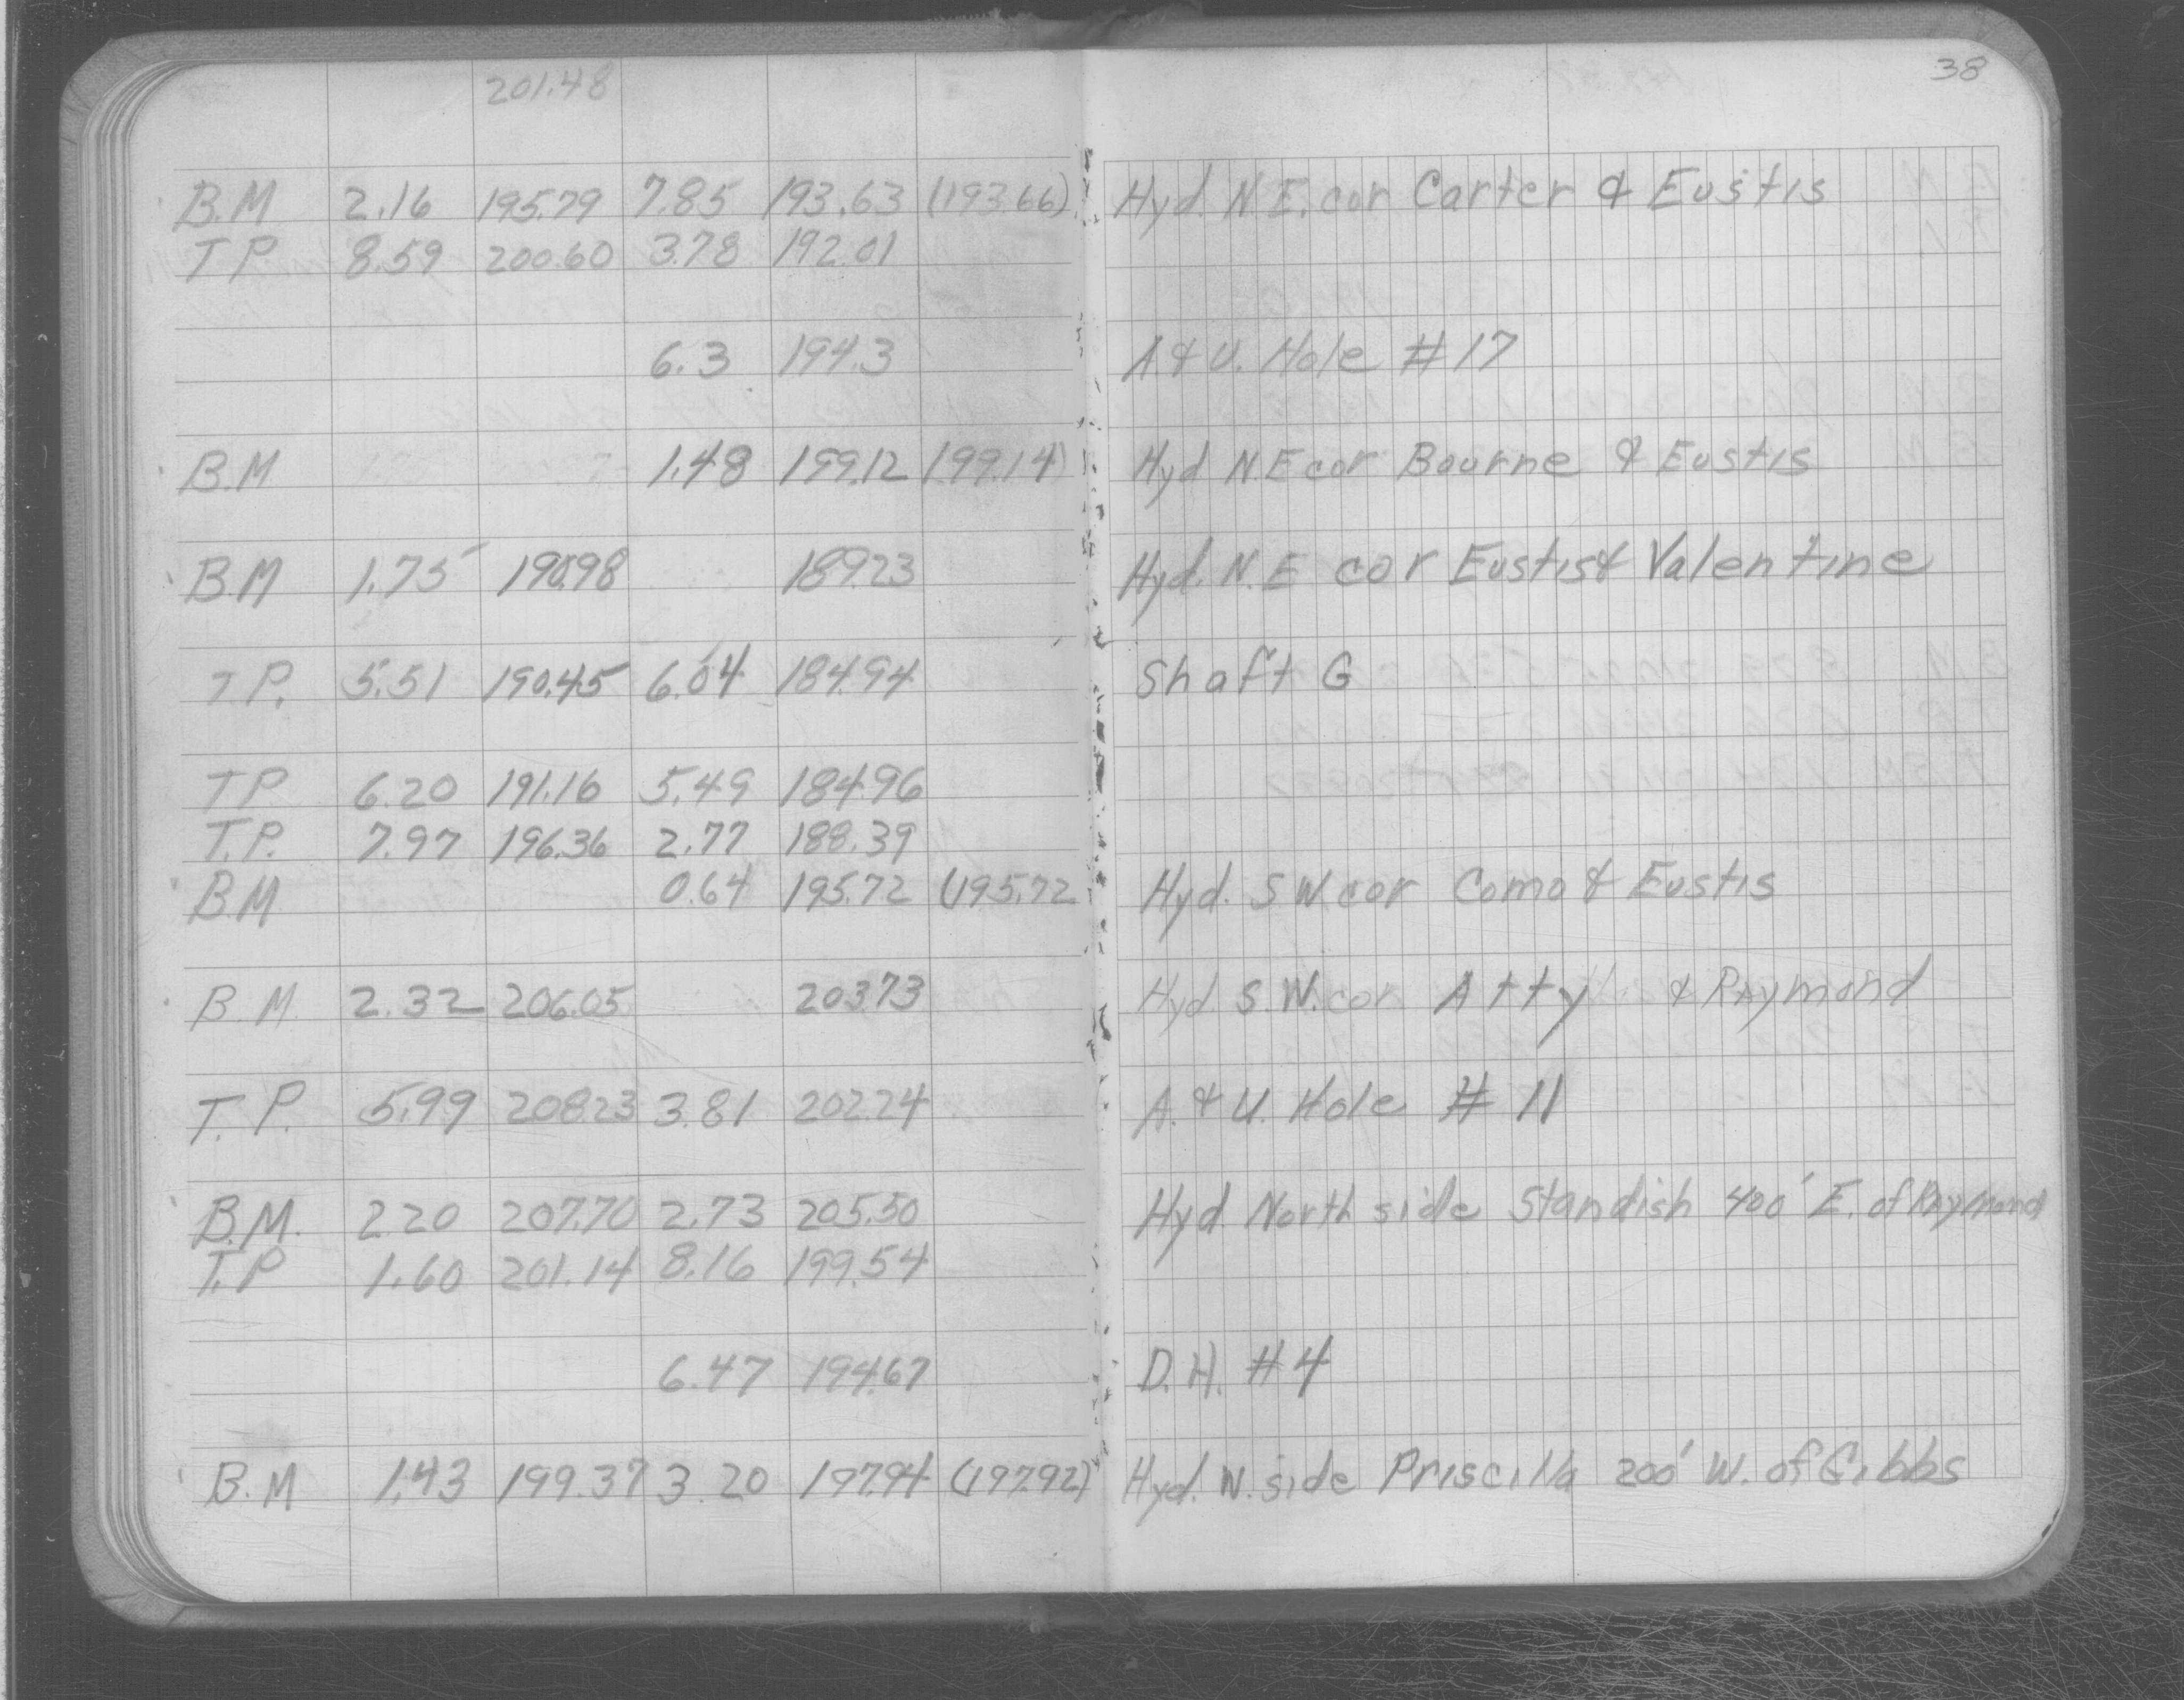 38
201.48
B.M 2.16 195.79 7.85 193.63 (193.66) Hyd. N.E. cor Carter & Eustis
T P 8.59 200.60 3.78 192.01
6.3 194.3 A & U. Hole #17
B.M 1.48 199.12 (199.14) Hyd N.E cor Bourne & Eustis
B.M 1.75 190.98 189.23 Hyd. N.E cor Eustis & Valentine
T P. 5.51 190.45 6.04 184.94 Shaft G
T P 6.20 191.16 5.49 184.96
T.P. 7.97 196.36 2.77 188.39
B M 0.64 195.72 (195.72 Hyd. S W. cor Como & Eustis
B.M. 2.32 206.05 203.73 Hyd S.W. cor Atty & Raymond
T. P. 5.99 208.23 3.81 202.24 A. & U. Hole # 11
B.M. 2.20 207.70 2.73 205.50 Hyd North side Standish 400' E. of Raymond
T.P 1.60 201.14 8.16 199.54
6.47 194.67 D.H. #4
B.M 1.43 199.37 3.20 197.94 (197.92) Hyd. N. side Priscilla 200' W. of Gibbs